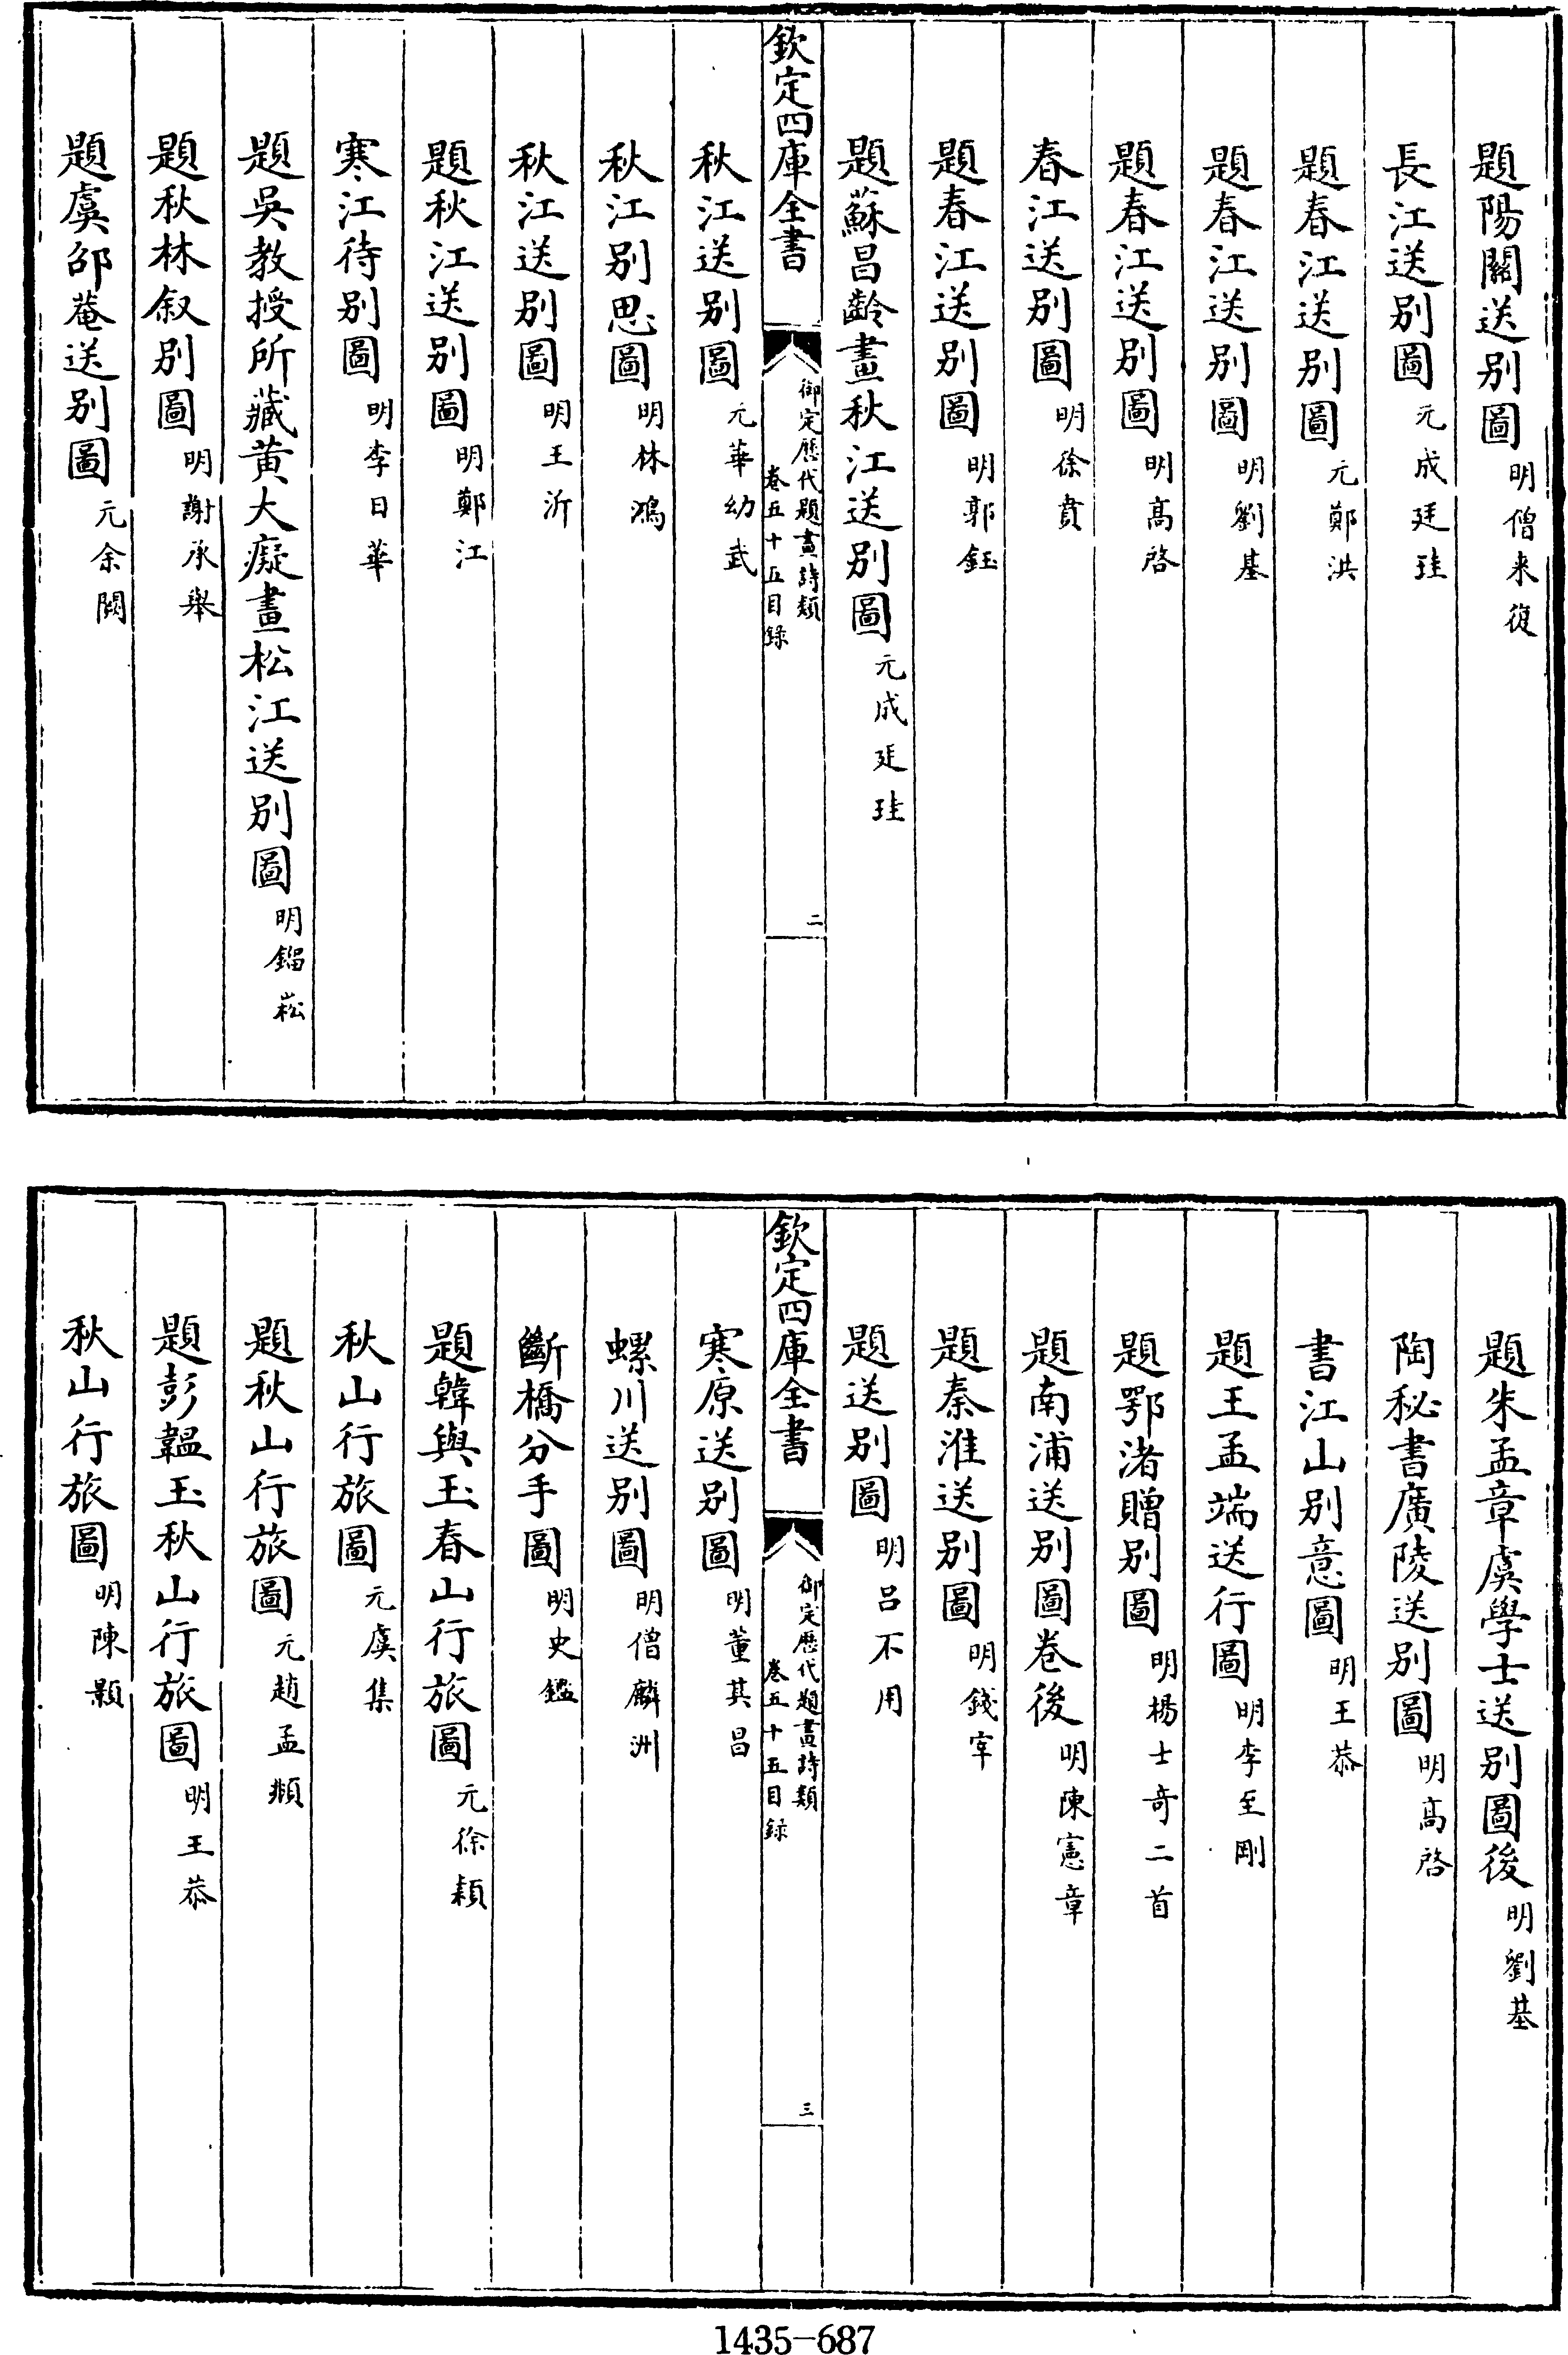 題陽關送别圖明僧来復
長江送别圖元成廷珪
題春江送别圖元鄭洪
題春江送别圖明劉基
題春江送别圖明髙啓
春江送别圖明徐賁
題春江送别圖明郭鈺
題蘇昌齡畫秋江送别圖元成廷珪
欽定四庫全書
御定歴代題畫詩類
卷五十五目録
二
秋江送别圖元華幼武
秋江别思圖明林鴻
秋江送别圖明王沂
題秋江送别圖明鄭江
寒江待别圖明李日華
題吳教授所藏黄大癡畫松江送别圖明鎦崧
題秋林叙别圖明謝承舉
題虞邵菴送别圖元余闕
題朱孟章虞學士送别圖後明劉基
陶秘書廣陵送别圖明髙啓
書江山别意圖明王恭
題王孟端送行圖明李至剛
題鄂渚贈别圖明楊士奇二首
題南浦送别圖卷後明陳憲章
題秦淮送别圖明錢宰
題送别圖明吕不用
欽定四庫全書
御定歴代題畫詩類
卷五十五目録
三
寒原送别圖明董其昌
螺川送别圖明僧麟洲
斷橋分手圖明史鑑
題韓與玉春山行旅圖元徐穎
秋山行旅圖元虞集
題秋山行旅圖元趙孟頫
題彭韞玉秋山行旅圖明王恭
秋山行旅圖明陳顥
1435-687